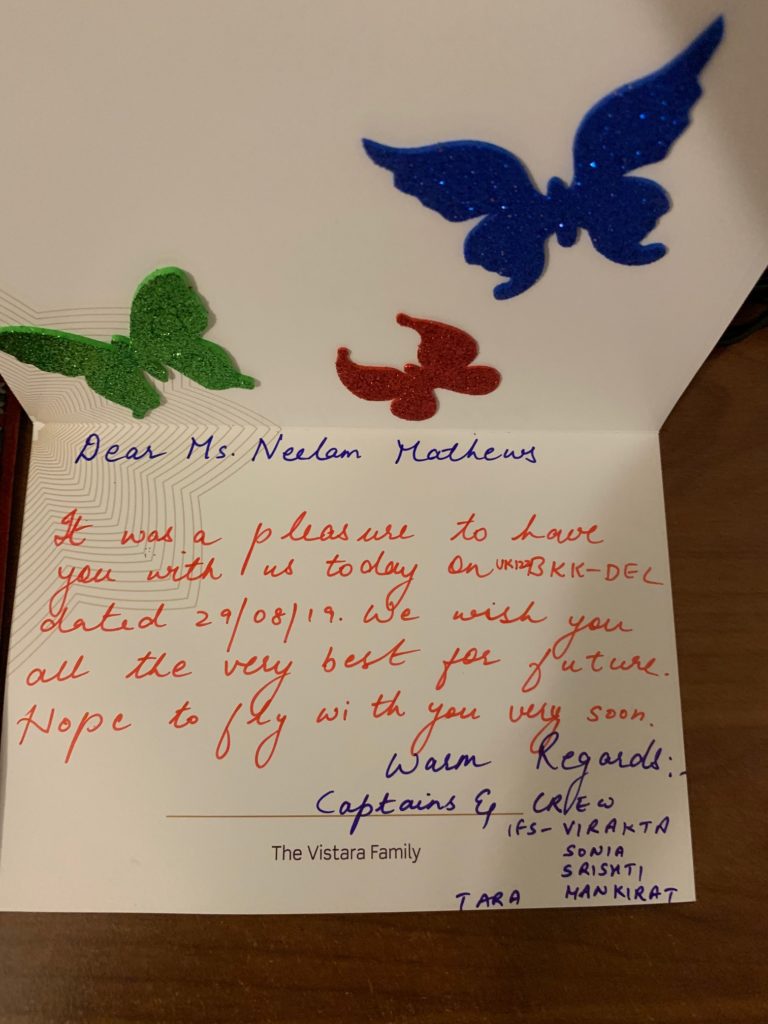 Dear Ms. Neelam Mathews
It was a pleasure to have
you with us today on BKK-DEL
dated 29/08/19. We wish you
all the very best for future.
Hope to fly with you very soon.
Warm Regards:-
Captains & CREW
IFS- VIRAKTA
The Vistara Family
SONIA
SRISHTI
TARA MANKIRAT